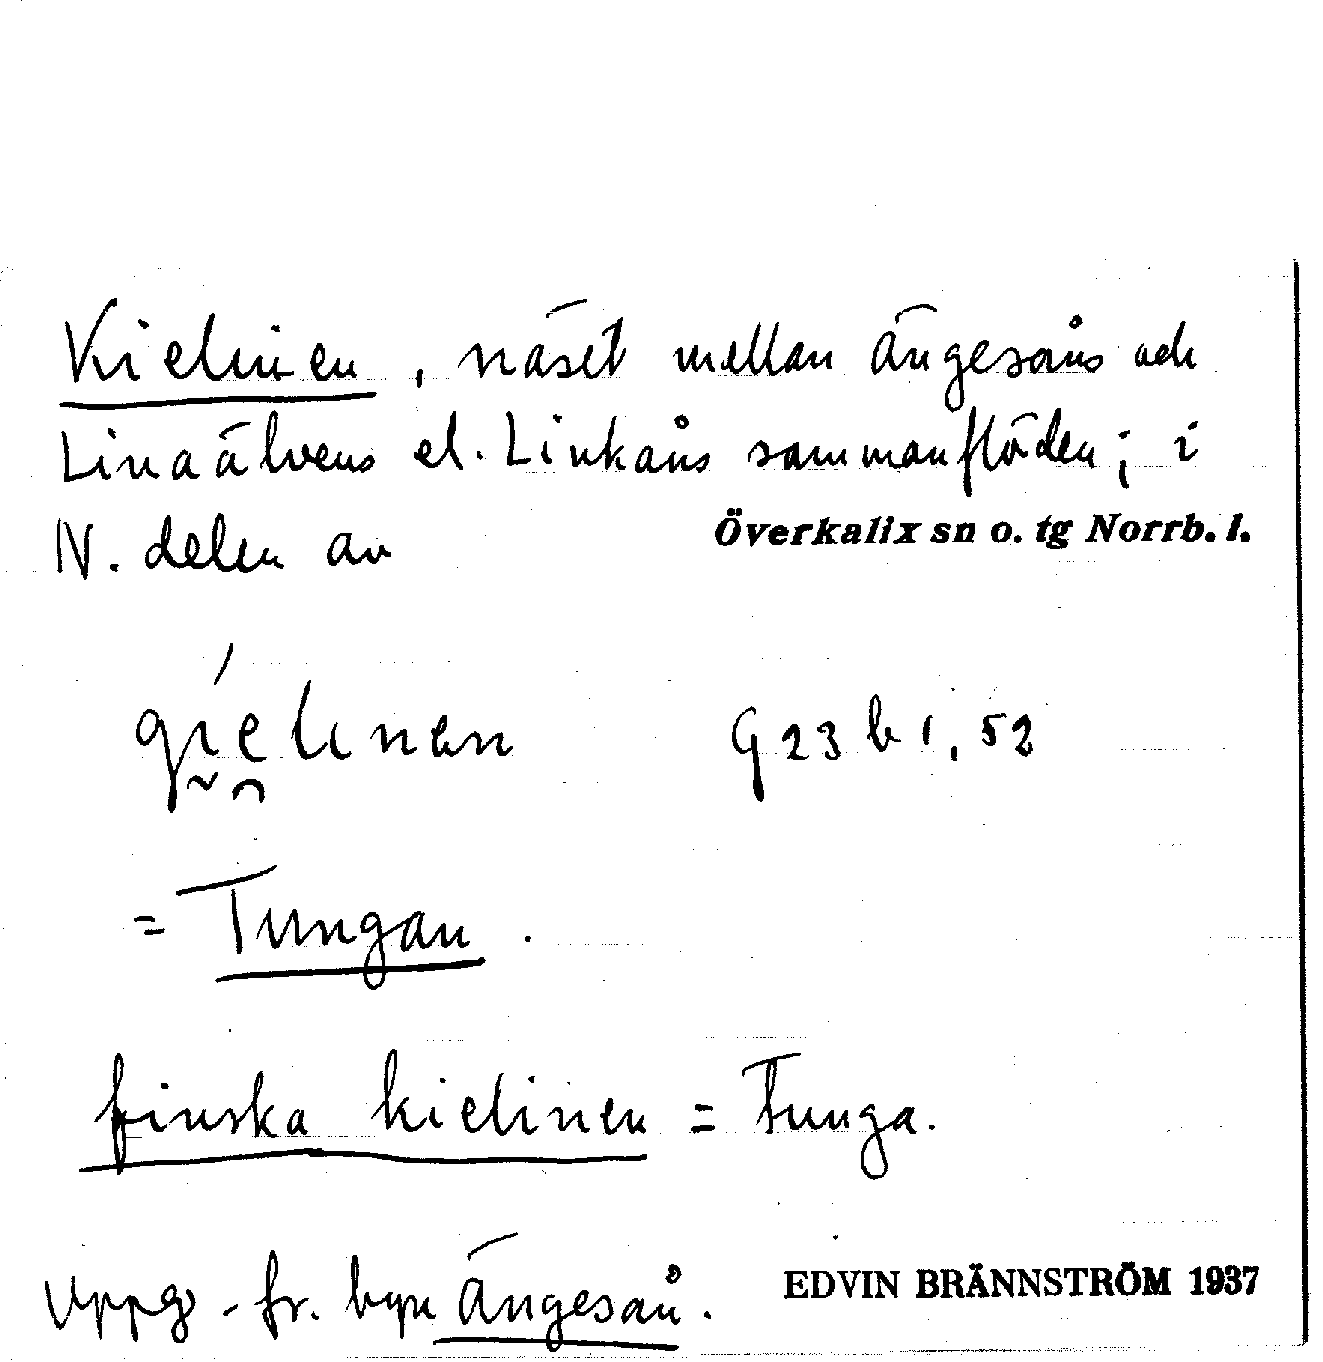 Kielinen, näset mellan Ängesåns och
Linaälvens el. Linkåns sammanflöden; i
N. delen av Överkalix sn o. tg Norrb. l.
gı́elınen G 23 b 1, 52
= Tungan.
finska kielinen = Tunga.
Uppg. fr. byn Ängesån. EDVIN BRÄNNSTRÖM 1937